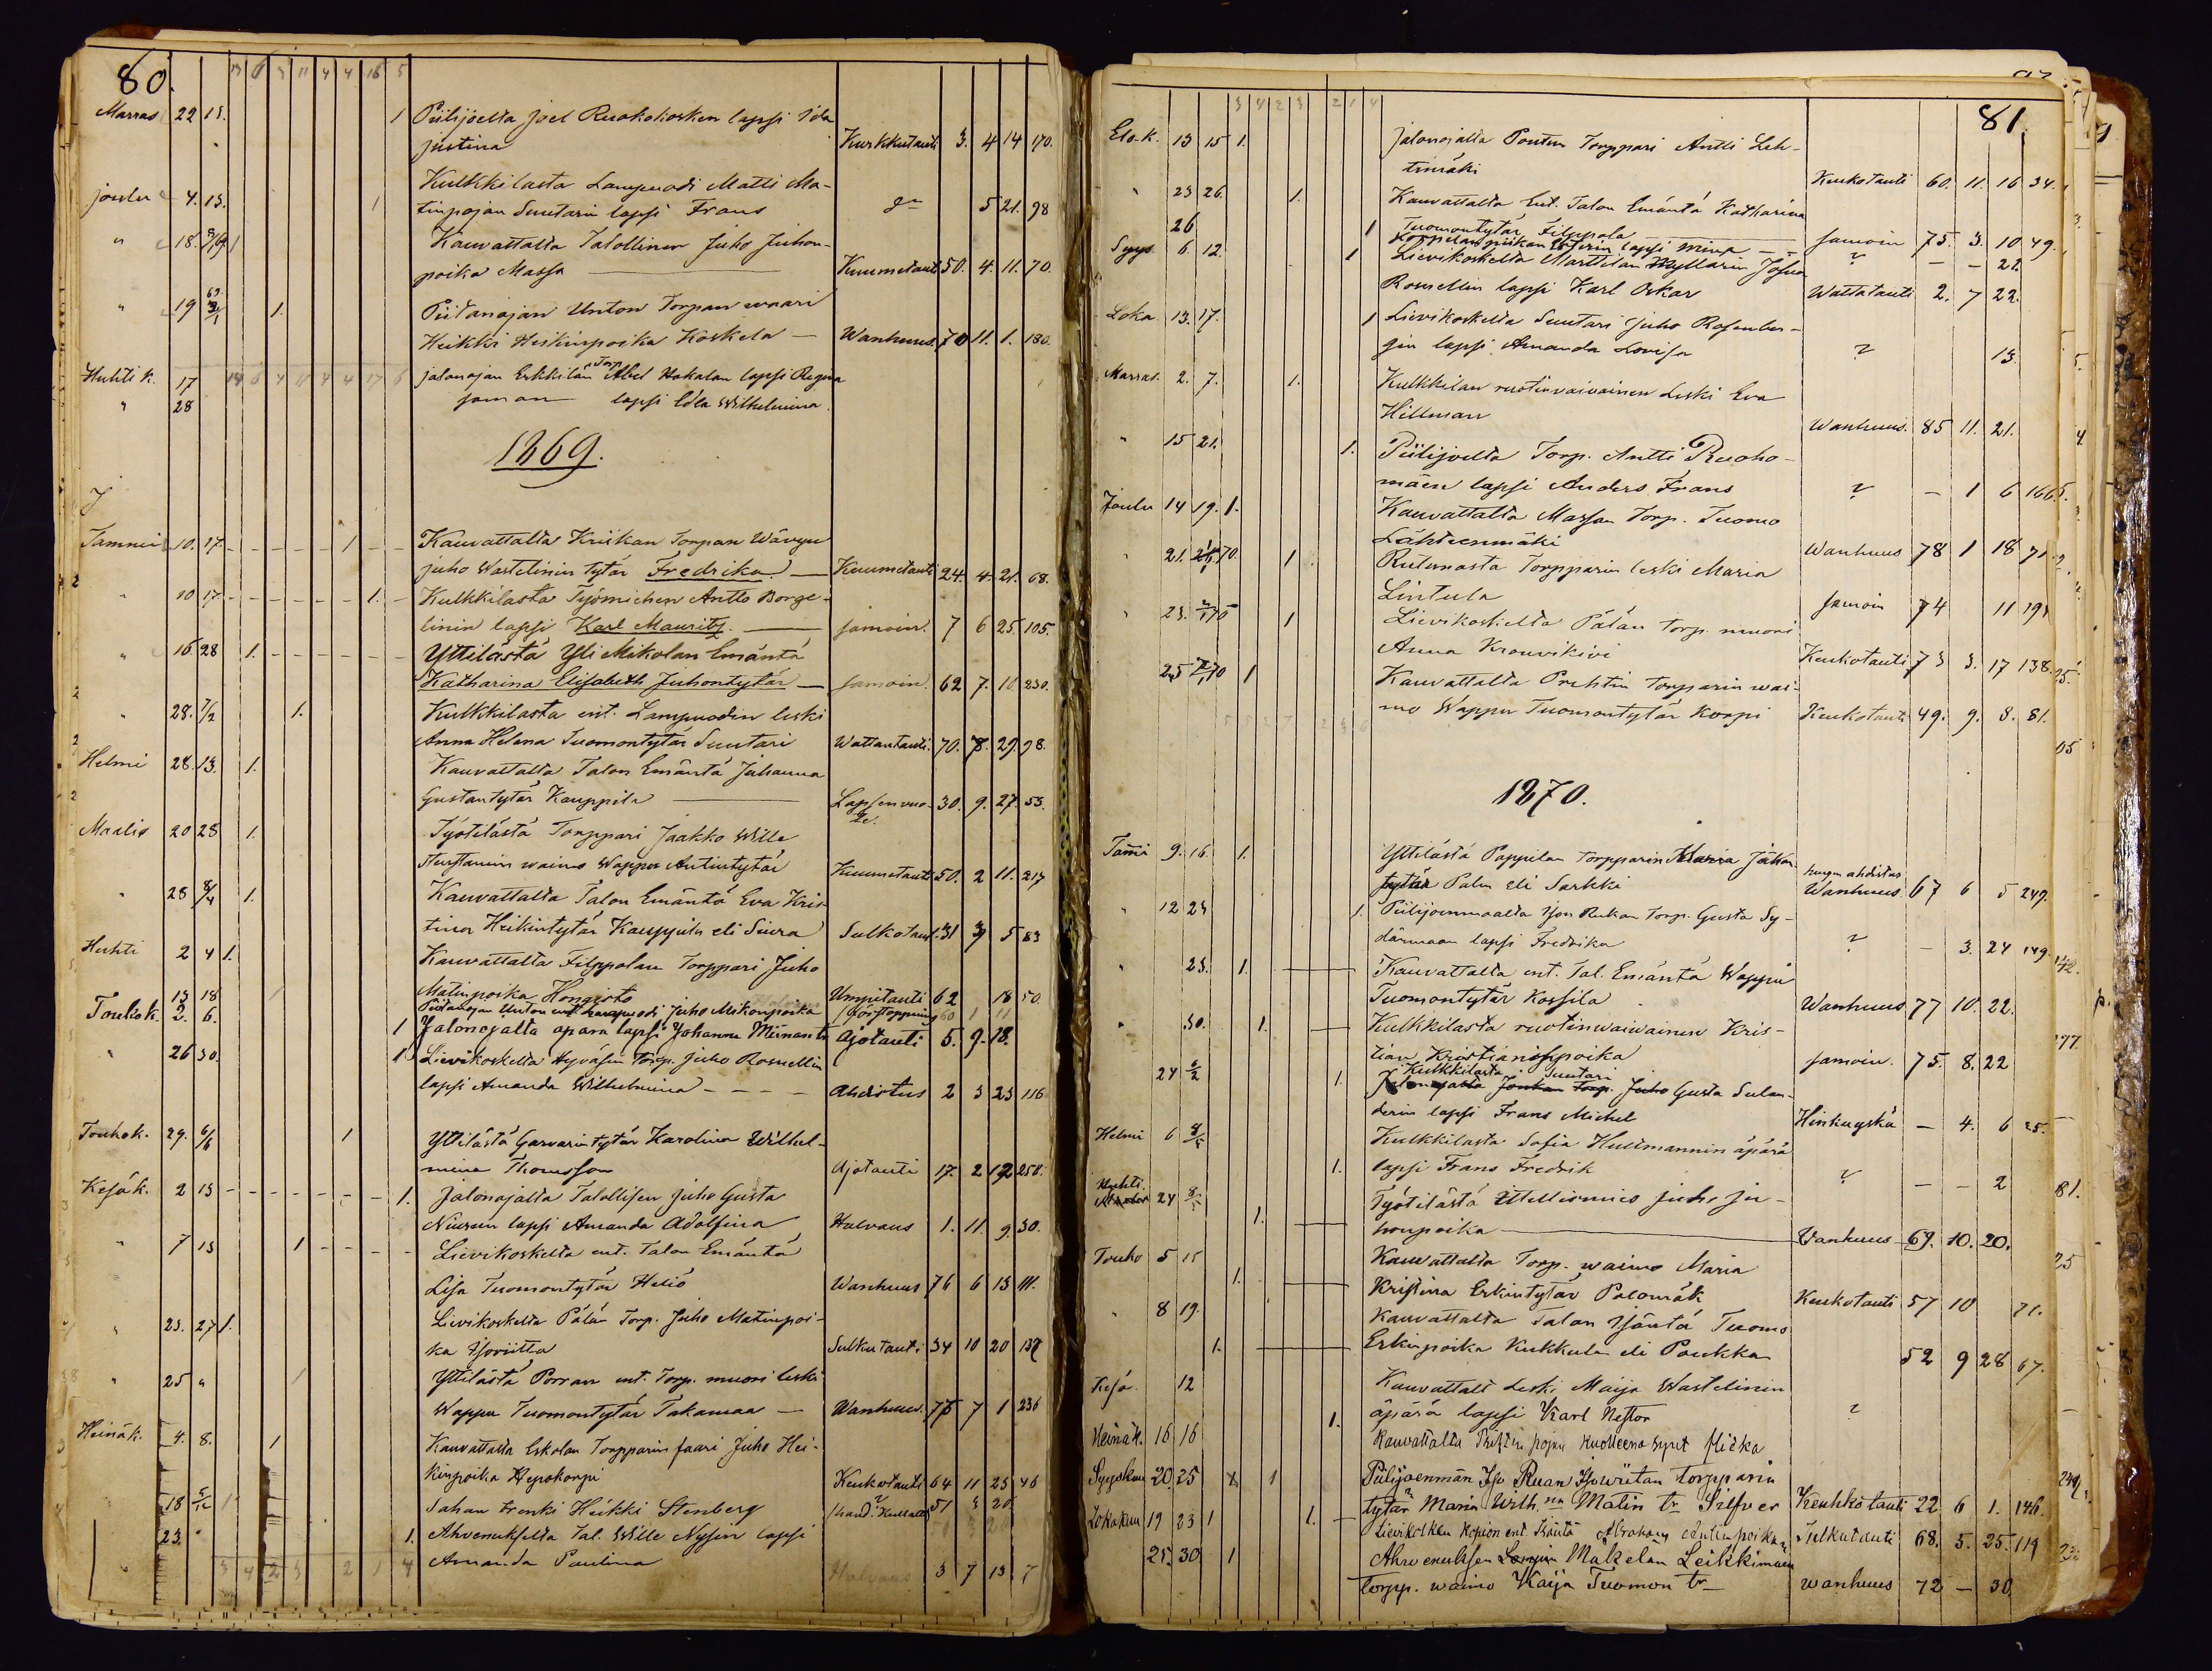 80.
Marras 22 15. 1 Piilijoelta Joel Ruokokosken lapsi Ida
Justina Kurkkutauti 3. 4 14 170.
Kulkkilasta Lampuodi Matti Ma-
joulu 4. 13. 1 tinpojan Suutarin lapsi Frans 5 21. 98
" 18. 1 Kauvattalta Talollinen Juho Juhon-
poika Massa Kuumetauti 50. 4. 11. 70.
" 19 1. Piitanojan Unton Torpan waari
Heikki Heikinpoika Koskela — Wanhuus. 70 11. 1. 180.
Huhti k. 17 jalonojan Erkkilän Torp Abel Hakalan lapsi Regina
" 28 saman lapsi Ida Wilhelmina.
1869.
Tammi 10. 17. 1 Kauvattalta Kriikan Torpan Wävyn
juho Wastelinin tytär Fredrika. — Kuumetauti 24. 4. 21. 68.
" 10 17 1. Kulkkilasta Työmiehen Antto Borge-
linin lapsi Karl Mauritz. — samoin. 7 6 25. 105.
" 16 28 1. Yttilästä Yli Mikolan Emäntä
Katharina Elisabeth Juhontytär — samoin. 62 7. 10. 230.
" 28. 7/2 1. Kulkkilasta ent. Lampuodin leski
Anna Helena Tuomontytär Suutari Wattantauti. 70. 8. 29. 98.
Helmi 28. 13. 1. Kauvattalta Talon Emäntä Johanna
Gustantytär Kauppila — Lapsenvuo- 30. 9. 27. 53.
de.
Maalis 20 28 1. Työtilästä Torppari Jaakko Wille
waimo Wappu Antintytär Kuumetauti 50. 2 11. 217
" 28 8/4 1. Kauvattalta Talon Emäntä Eva Kris
tina Heikintytär Kauppila eli Siura Sulkutauti. 31 3 5 83
Huhti 2 4 1. Kauvattalta Filppolan Torppari Juho
Matinpoika Hongisto Umpitauti 62 18 50.
13 18 Piitanojan Unton ent. Lampuodi Juho Mikonpoika förstoppning 60 1 11
Touko k. 2. 6. 1 Jalonojalta äpärä lapsi Johanna Miinanti Ajotauti 5. 9. 18.
" 26 30. 1 Lievikoskelta Hyväsin Torp. Juho Rosnellin
lapsi Amanda Wilhelmina - - - Ahdistus 2 3 23 116
Touko k. 29. 6/6 1 Yttilästä Garvarintytär Karolina Wilhel-
mina Thomsson Ajotauti 17. 2 12 250.
Kesä k. 2 13 1. Jalonojalta Talollisen Juho Gusta
Niursun lapsi Amanda Adolfina Halvaus 1. 11. 9 30.
" 7 13 1 Lievikoskelta ent. Talon Emäntä
Lisa Tuomontytär Heliö Wanhuus 76 6 13 111.
" 23. 27 1. Lievikoskelta Pälän Torp. Juho Matinpoi-
ka Isoriitta Sulkutauti 34 10 20 139
" 25 " 1 Yttilästä Porran ent. Torp. muori leski
Wappu Tuomontytär Takamaa — Wanhuus. 75 7 1 236
Heinä k. 4. 8. 1 Kauvattalta Eskolan Torpparin faari Juho Hei-
kinpoika Hepokorpi Keukotauti 64 11 23 46
18 Sahan trenki Heikki Stenberg 51 3 20
23. " 1. Ahvenukselta Tal. Wille Nysin lapsi
Amanda Paulina Halvaus 3 7 13 7
81.
Elo-k. 13 15 1. Jalonojalta Pontun Torppari Antti Leh-
timäki Keukotauti 60. 11. 16 34.
" 23 26. 1. Kauvattalta Ent. Talon Emäntä Katharina
Tuomontytär Filppola samoin 75. 3. 10 49.
26 1 Korpelan piikan Esterin lapsi Mina — ? — — 21.
Syys. 6. 12. 1 Lievikoskelta Marttilan Myllärin Josua
Rosnellin lapsi Karl Oskar Wattatauti 2. 7 22.
Loka 13. 17. 1 Lievikoskelta Suutari Juho Rosenber-
gin lapsi Amanda Lovisa ? 13.
Marras. 2. 7. 1. Kulkkilan ruotivaivainen Leski Eva
Hillman Wanhuus. 85 11. 21.
" 15 21. 1. Piilijoelta Torp. Antti Ruoho-
mäen lapsi Anders Frans ? — 1 6 166
Joulu 14 19. 1. Kauvattalta Massan Torp. Tuomo
Lähteenmäki Wanhuus 78 1 18 71
" 21. 70. 1 Rutunasta Torpparin leski Maria
Lintula samoin 74 11 191
" 23. 1 Lievikoskelta Pälän torp. muori
Anna Krouvikivi Keukotauti 73 3. 17 138.
25 1 Kauvattalta Prehtin torpparin wai-
mo Wappu Tuomontytär Korpi Keukotauti 49. 9. 8. 81.
1870.
Tammi 9. 16. 1. Yttilästä Pappilan torpparin Maria Juhon-
tytär Palm eli Sarkki hengen ahdistus Wanhuus. 67 6 5 249.
" 12 23 1. Piilijoenmaalta Ison Ruhan Torp. Gusta Sy-
dänmaan lapsi Fredrika ? — 3. 24 149.
" 23. 1. Kauvattalta ent. Tal. Emäntä Wappu
Tuomontytär Kossila Wanhuus 77 10. 22.
" 30. 1. Kulkkilasta ruotinwaiwainen Kris-
tian Kristianinpoika samoin. 75. 8. 22
24 6/2 1. Kulkkilasta Suutari Gusta Sulan-
derin lapsi Frans Michel Hinkuyskä — 4. 6 25.
Helmi 6 Kulkkilasta Sofia Hultmannin äpärä
1. lapsi Frans Fredrik ? — — 2
Huhti. 24 1. Työtilästä Itellismies Juho Ju-
honpoika — Wanhuus 69. 10. 20.
Touko 5 15 1. Kauvattalta Torp. waimo Maria
Kristina Erkintytär Palomäk Keukotauti 57 10 71.
" 8 19. 1. Kauvattalta Talon Isäntä Tuomo
Erkinpoika Kukkula eli Poukka 52 9 28 67.
Kesä. 12 Kauvattalt Leski Maija Wastelinin
1. äpärä lapsi Karl Nestor ?
Heinä k. 16 16 Kauvattalta
Syyskuu 20. 25 1 Piilijoenmän Iso Ruan Isowiitan torpparin
tytär Maria Wilh. na Matin tr Silfver Keuhkotauti 22 6 1. 146.
Lokakuu 19 23 1 1. Lievikosken Kopion ent. Isäntä Abraham Antinpoika Sulkutauti 68. 5. 25. 119
25. 30 1 Ahvenuksen Mäkelän Leikkimäen
torpp. waimo Kaija Tuomon tr wanhuus 72 — 30.